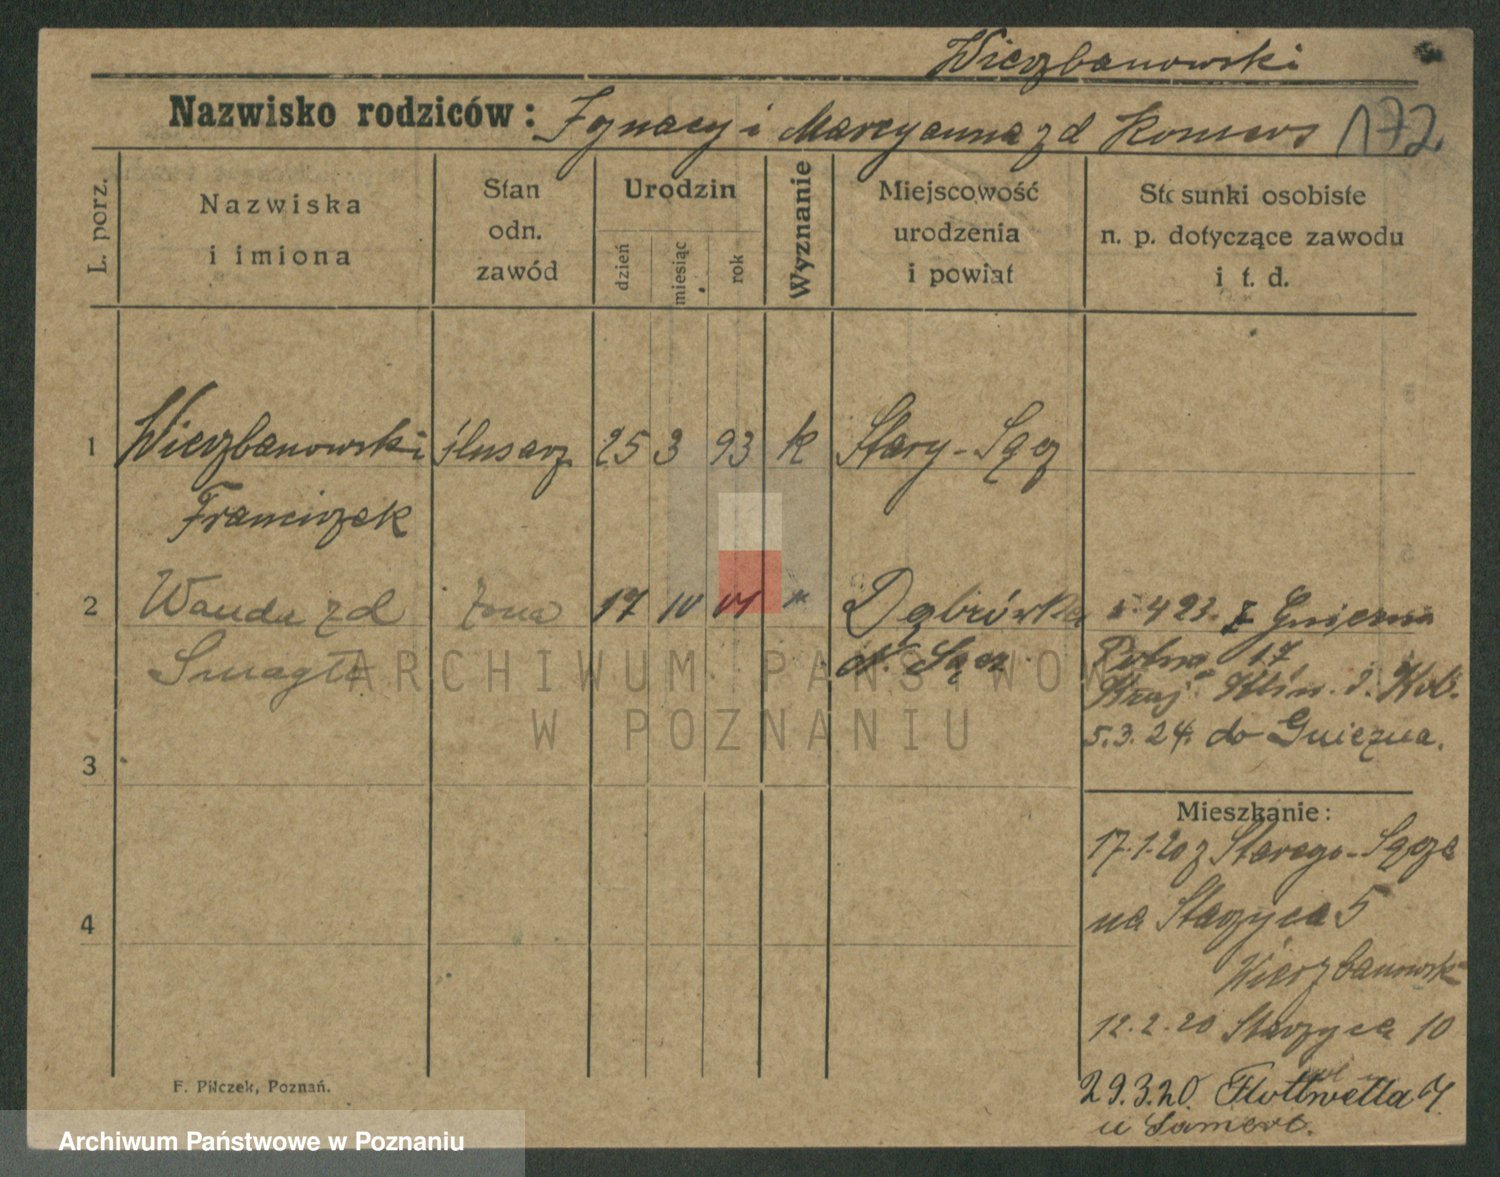 Wierzbanowski
Nazwisko rodziców: Ignacy i Marcyanna zd Koners 172
L. porz.
Nazwiska
i imiona
Stan
odn.
zawód
Urodzin
dzień
miesiąc
rok
Wyznanie
Miejscowość
urodzenia
i powiat
Stosunki osobiste
n. p. dotyczące zawodu
i t. d.
1 Wierzbanowski ślusarz 25 3 93 k Stary-Sącz
Franciszek
2 Wanda zd żona 17 10 01 " Dąbrówka 4 23. z Gniezna
Smagła N. Sącz 17
5.3.24. do Gniezna.
3
Mieszkanie:
17.1.20 z Starego-Sącza
4 na Starzyca 5
Wierzbanowski
12.2.20 Starzyca 10
29.3.20. Flottwella 7
u
F. Pilczek, Poznań.
ARCHIWUM PAŃSTWOWE
W POZNANIU
Archiwum Państwowe w Poznaniu